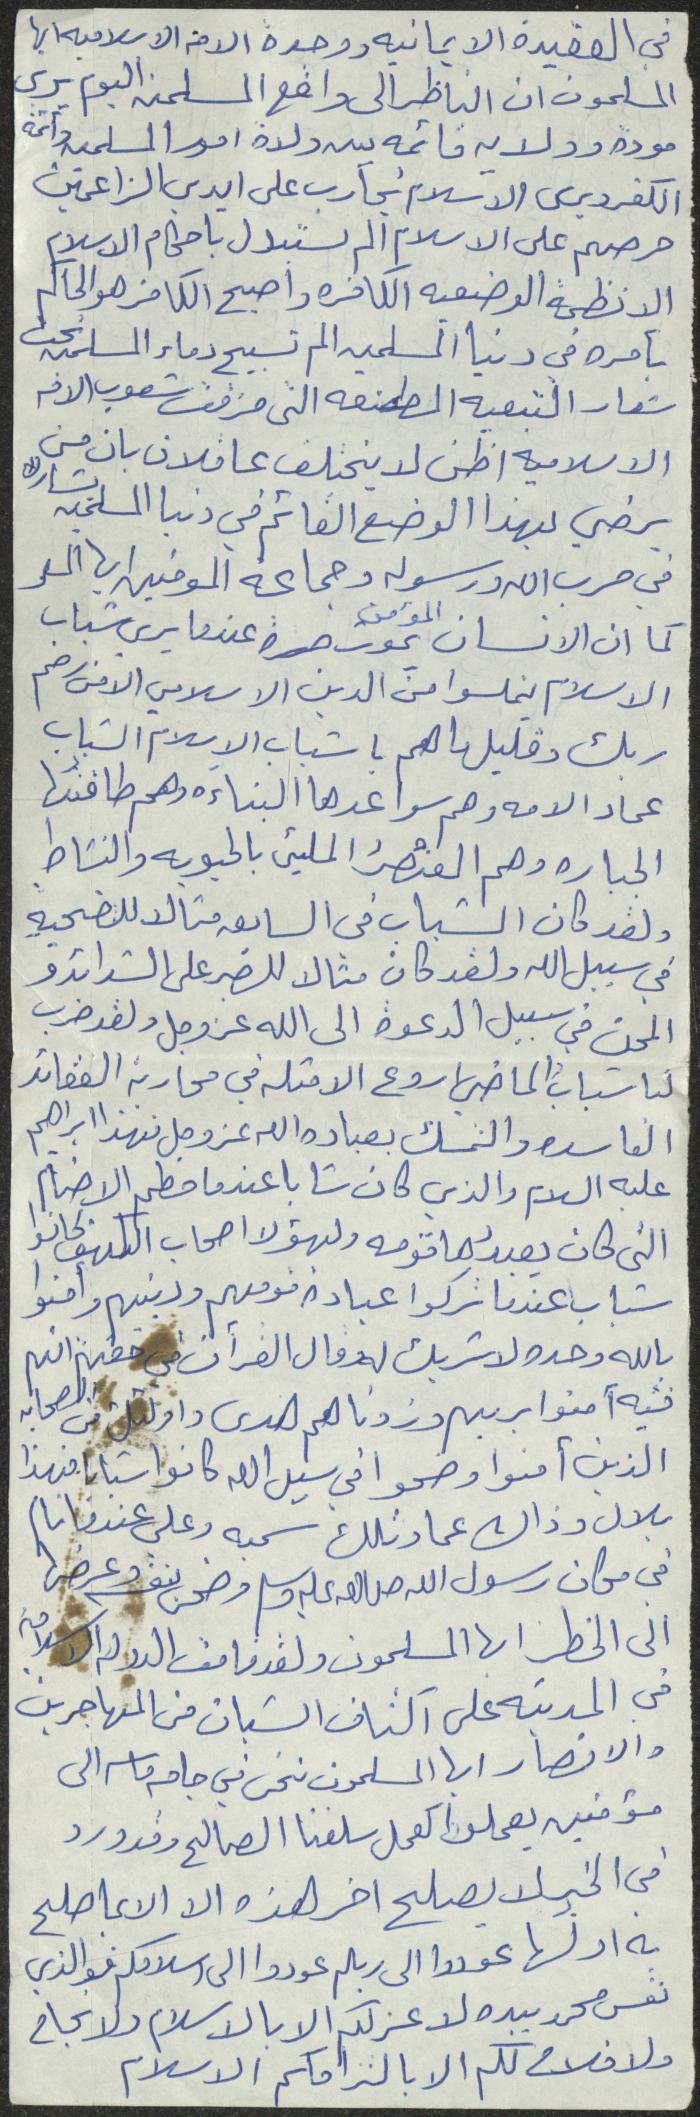 في العقيدة الايمانيه ووحدة الامه الاسلاميه ايها
المسلمون ان الناظر الى واقع المسلمين اليوم يرى
مودة وولايه قائمه بين ولاة امور المسلمين وأئمة
الكفر ويرى الاسلام يحارب على ايدي الزاعمين
حرصهم على الاسلام الم تستبدل باحكام الاسلام
الانظمة الوضعيه الكافره واصبح الكافر هو الحاكم
بأمره في دنيا المسلمين الم تسبيح دماء المسلمين تحت
شعار التبعيه المصطنعه التي مزقت شعوب الامه
الاسلاميه اظن لا يختلف عاقلان بان من
يرضي بهذا الوضع القائم في دنيا المسلمين شارك
في حرب الله ورسوله وجماعة المؤمنين ايها المسلمو
كما ان الانسان المؤمن يموت حسرة عندما يرى شباب
الاسلام ينملسوا من الدين الاسلامي الا من رحم
ربك وقليل ما هم يا شباب الاسلام الشباب
عماد الامه وهم سواعدها البناءه وهم طاقتها
الجباره وهم العنصر المليئ بالحيويه والنشاط
ولقد كان الشباب في السابق مثالا للتضحيه
في سبيل الله ولقد كان مثالا للصبر على الشدائد و
المحن في سبيل الدعوة الى الله عز وجل ولقد ضرب
لنا شباب الماضي اروع الامثله في محاربة العقائد
الفاسده والتمسك بعباده الله عز وجل فهذا ابراهيم
عليه السلام والذي كان شابا عندما حطم الاصنام
التي كان يعبدها قومه ولهؤلا اصحاب الكهف كانوا
شباب عندما تركوا عبادة قومهم ودينهم وآمنوا
بالله وحده لا شريك له وقال القرآن في حقهم انهم
فتيه آمنوا بربهم وزدناهم هدى واولئك من الصحابه
الذين آمنوا وضحوا في سبيل الله كانوا شبابا فهذا
بلال وذاك عمار وتلك سميه وعلي عندما نام
في مكان رسول الله صلى الله عليه وسلم وضحى بنفسه وعرضها
الى الخطر ايها المسلمون ولقد قامت الدوله الاسلاميه
في المدينه على اكتاف الشبان من المهاجرين
والانصار ايها المسلمون نحن في حاجه ماسه الى
مؤمنين يعملوا كعمل سلفنا الصالح وقد ورد
في الخبر لا يصلح اخر هذه الا الا بما صلح
به اولها عودوا الى ربكم عودوا الى اسلامكم فوالذي
نفس محمد بيده لا عز لكم الا بالاسلام ولا نجاح
ولا فلاح لكم الا بالتزامكم الاسلام